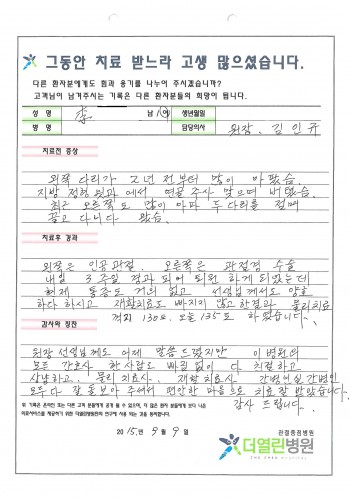 그동안 치료 받느라 고생 많으셨습니다.
다른 환자분에게도 힘과 용기를 나누어 주시겠습니까?
고객님이 남겨주시는 기록은 다른 환자분들의 희망이 됩니다.
성 명 李 남/여 생년월일
병 명 담당의사 원장. 김인규
치료전 증상
왼쪽 다리가 2년 전부터 많이 아팠음.
지방 정형외과에서 연골주사 맞으며 버텼음.
최근 오른쪽도 많이 아파 두 다리를 절며
끌고 다니다 왔음.
치료후 경과
왼쪽은 인공관절. 오른쪽은 관절경 수술
내일 3주일 경과 되어 퇴원 하게 되었는데
현재 통증도 거의 없고 선생님께서도 양호
하다 하시고 재활치료도 빠지지 않고 한결과 물리치료
꺽기 130도. 오늘 135도 하였습니다.
감사와 칭찬
원장 선생님께도 어제 말씀 드렸지만 이 병원의
모든 간호사 한사람도 빠짐 없이 다 친절하고
상냥하고. 물리 치료사. 재활 치료사 간병인실 간병인
모두다 잘 돌보아 주셔서 편안한 마음으로 치료 잘 받았습니다.
감사 드립니다.
위 기록은 온라인 또는 다른 고객 분들에게 공개 될 수 있으며, 더 많은 환자 분들에게 보다 나은
의료서비스를 제공하기 위한 더열린병원의 연구에 사용 되는 것을 동의합니다.
2015년 9월 9일
관절중점병원
더열린병원
THE OPEN HOSPITAL